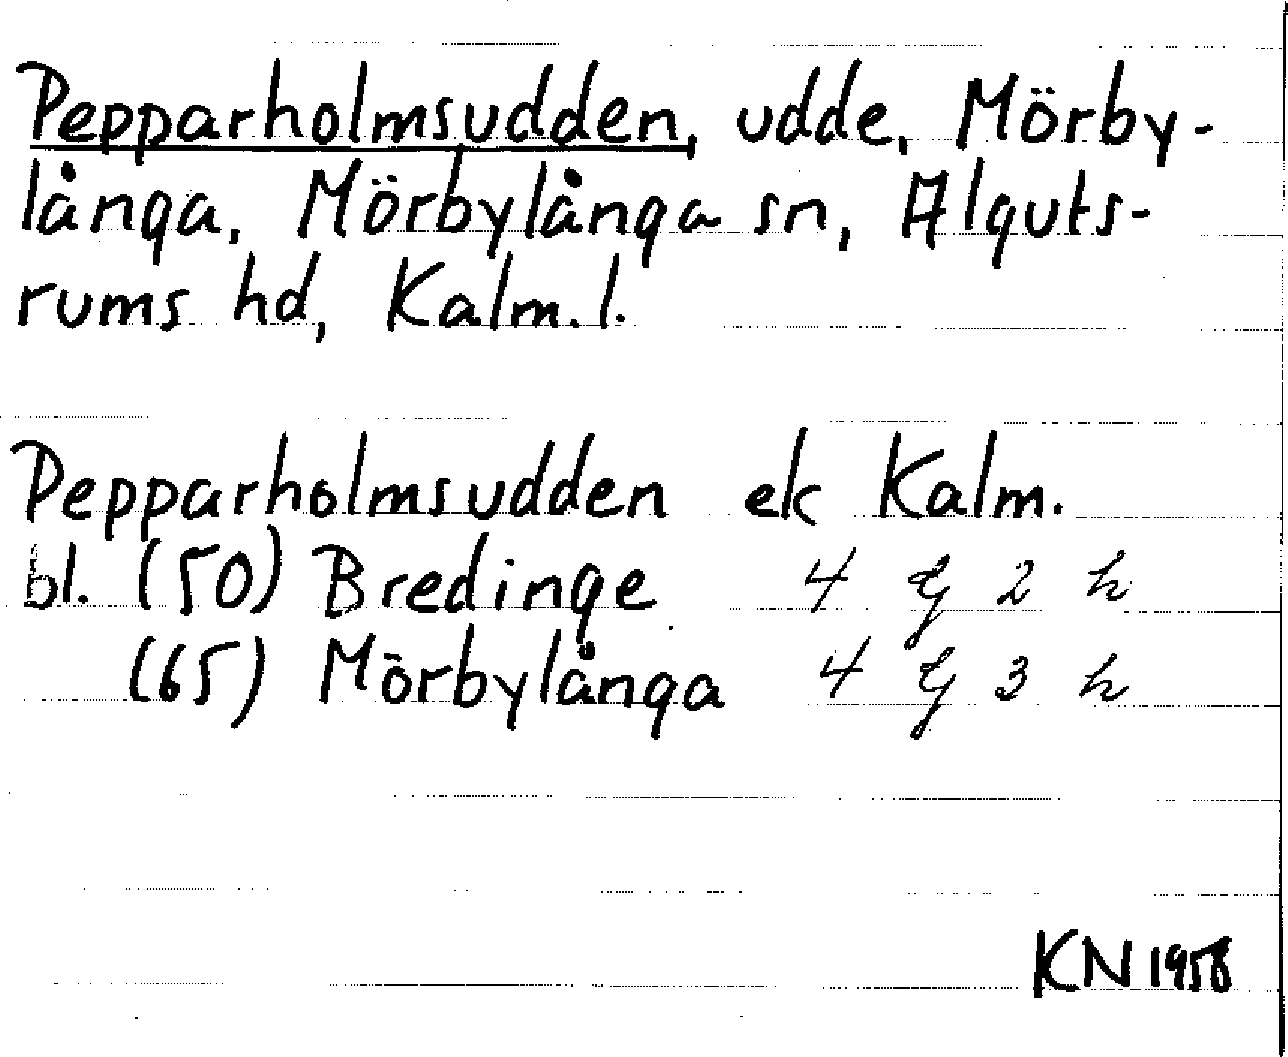 Pepparholmsudden, udde, Mörby-
långa, Mörbylånga sn, Alguts-
rums hd, Kalm. l.
Pepparholmsudden ek Kalm.
bl. (50) Bredinge 4 G 2 h
(65) Mörbylånga 4 G 3 h
KN 1958